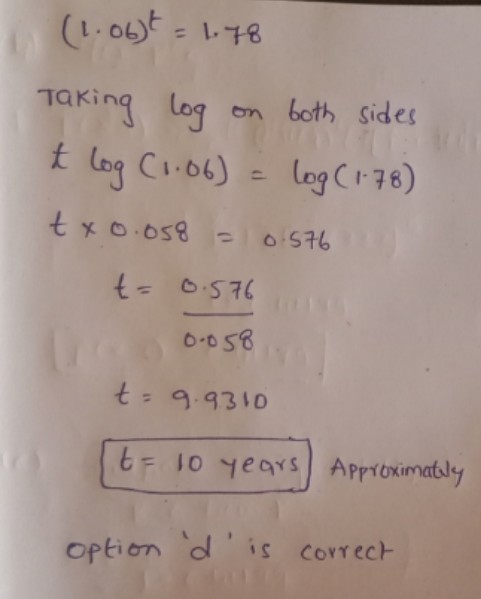 (1.06)^t = 1.78
Taking log on both sides
t log (1.06) = log(1.78)
t × 0.058 = 0.576
t = 0.576
0.058
t = 9.9310
t = 10 years Approximatly
option 'd' is correct